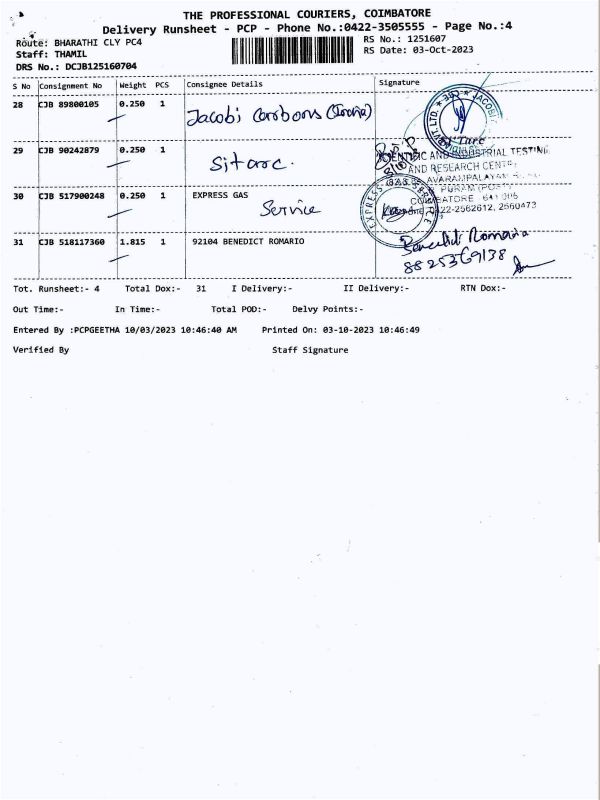 THE PROFESSIONAL COURIERS, COIMBATORE
Delivery Runsheet - PCP - Phone No.:0422-3505555 - Page No.:4
Route: BHARATHI CLY PC4
RS No.: 1251607
Staff: THAMIL
RS Date: 03-Oct-2023
DRS No.: DCJB125160704
S No Consignment No Weight PCS Consignee Details Signature
28 CJB 89800105 0.250 1 Jacobi Carbons (India)
JACOBI
PVT. LTD.
29 CJB 90242879 0.250 1 Sitarc.
SCIENTIFIC AND INDUSTRIAL TESTING
AND RESEARCH CENTRE
AVARAMPALAYAM
PURAM (POST)
COIMBATORE - 641 006
0422-2562612, 2560473
30 CJB 517900248 0.250 1 EXPRESS GAS
Service
EXPRESS GAS SERVICE
31 CJB 518117360 1.815 1 92104 BENEDICT ROMARIO
Benedict Romario
8825369138
Tot. Runsheet:- 4 Total Dox:- 31 I Delivery:- II Delivery:- RTN Dox:-
Out Time:- In Time:- Total POD:- Delvy Points:-
Entered By :PCPGEETHA 10/03/2023 10:46:40 AM Printed On: 03-10-2023 10:46:49
Verified By Staff Signature